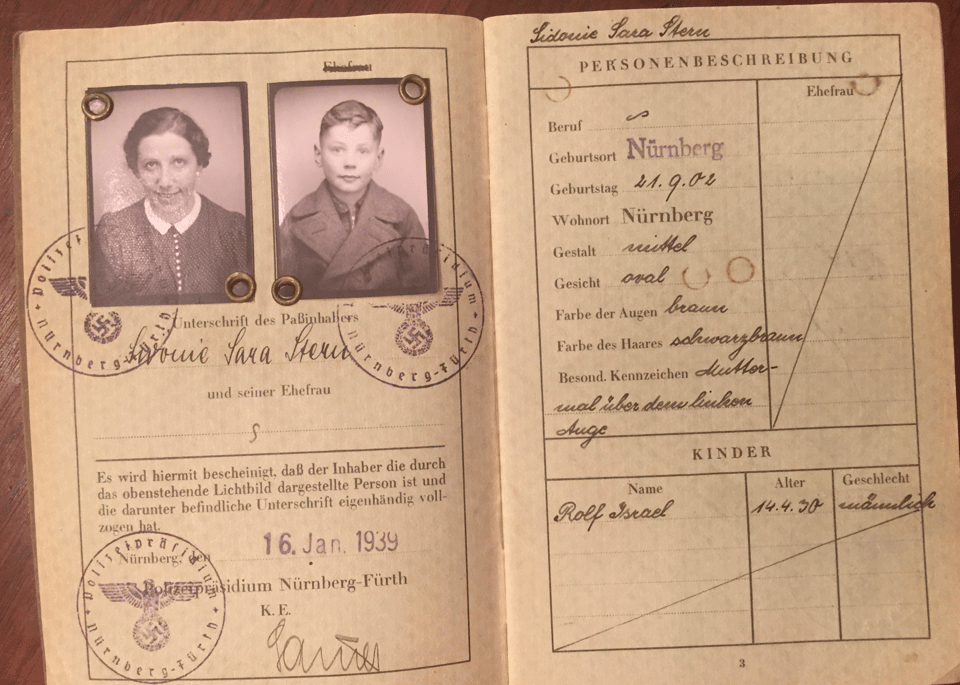 Ehefrau
Polizeipräsidium
Nürnberg-Fürth
Polizeipräsidium
Nürnberg-Fürth
Unterschrift des Paßinhabers
Sidonie Sara Stern
und seiner Ehefrau
Es wird hiermit bescheinigt, daß der Inhaber die durch
das obenstehende Lichtbild dargestellte Person ist und
die darunter befindliche Unterschrift eigenhändig voll-
zogen hat.
Nürnberg, den 16. Jan. 1939
Polizeipräsidium Nürnberg-Fürth
K. E.
Polizeipräsidium
Nürnberg-Fürth
Sidonie Sara Stern
PERSONENBESCHREIBUNG
Ehefrau
Beruf
Geburtsort Nürnberg
Geburtstag 21.9.02
Wohnort Nürnberg
Gestalt mittel
Gesicht oval
Farbe der Augen braun
Farbe des Haares schwarzbraun
Besond. Kennzeichen Mutter-
mal über dem linken
Auge
KINDER
Name Alter Geschlecht
Rolf Israel 14.4.30 männlich
3